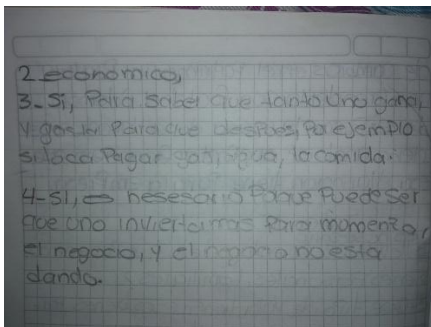 2 economico,
3- Si, Para saber que tanto uno gana,
y gasta Para que despues, Por ejemplo
si toca Pagar gas, agua, la comida.
4- SI, es nesesario Porque Puede ser
que uno invierta mas Para
el negocio, y el negocio no esta
dando.